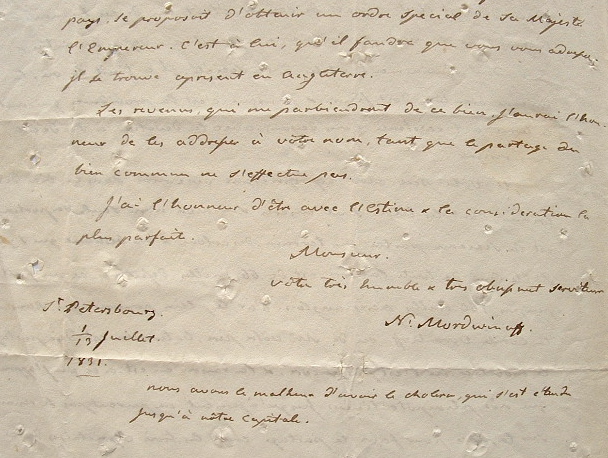 pays, se proposoit d'obtenir un ordre special de Sa Majesté
l'Empereur. C'est à lui, qu'il faudra que vous vous adressiez.
il se trouve apresent en Angleterre.
Les revenus, qui me parviendront de ce bien, j'aurai l'hon-
neur de les addresser à vôtre nom, tant que le partage du
bien commun ne s'effectue pas.
J'ai l'honneur d'être avec l'estime & la consideration la
plus parfaite.
Monsieur.
vôtre très humble & très obeissant serviteur
N. Mordwinoff.
St Petersbourg.
1/13 Juillet.
1831.
nous avons le malheur d'avoir le cholera, qui s'est etendu
jusqu'à nôtre capitale.